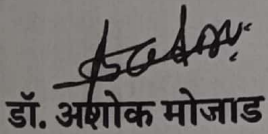 डॉ. अशोक मोजाड